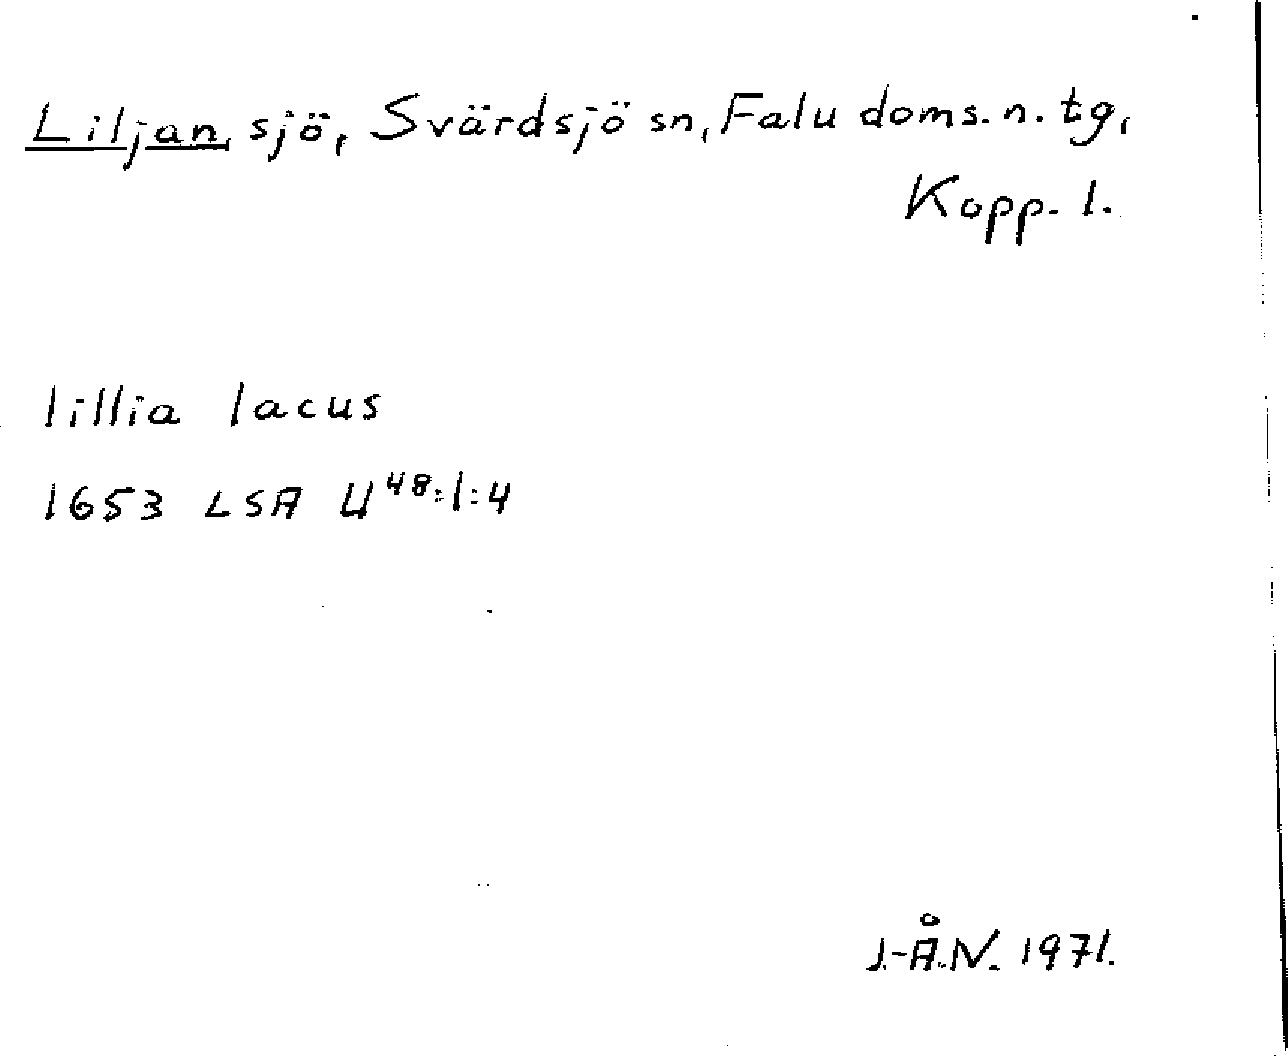 Liljan, sjö, Svärdsjö sn, Falu doms. n. tg,
Kopp. l.
lillia lacus
1653 LSA U48:1:4
J.-Å.N. 1971.